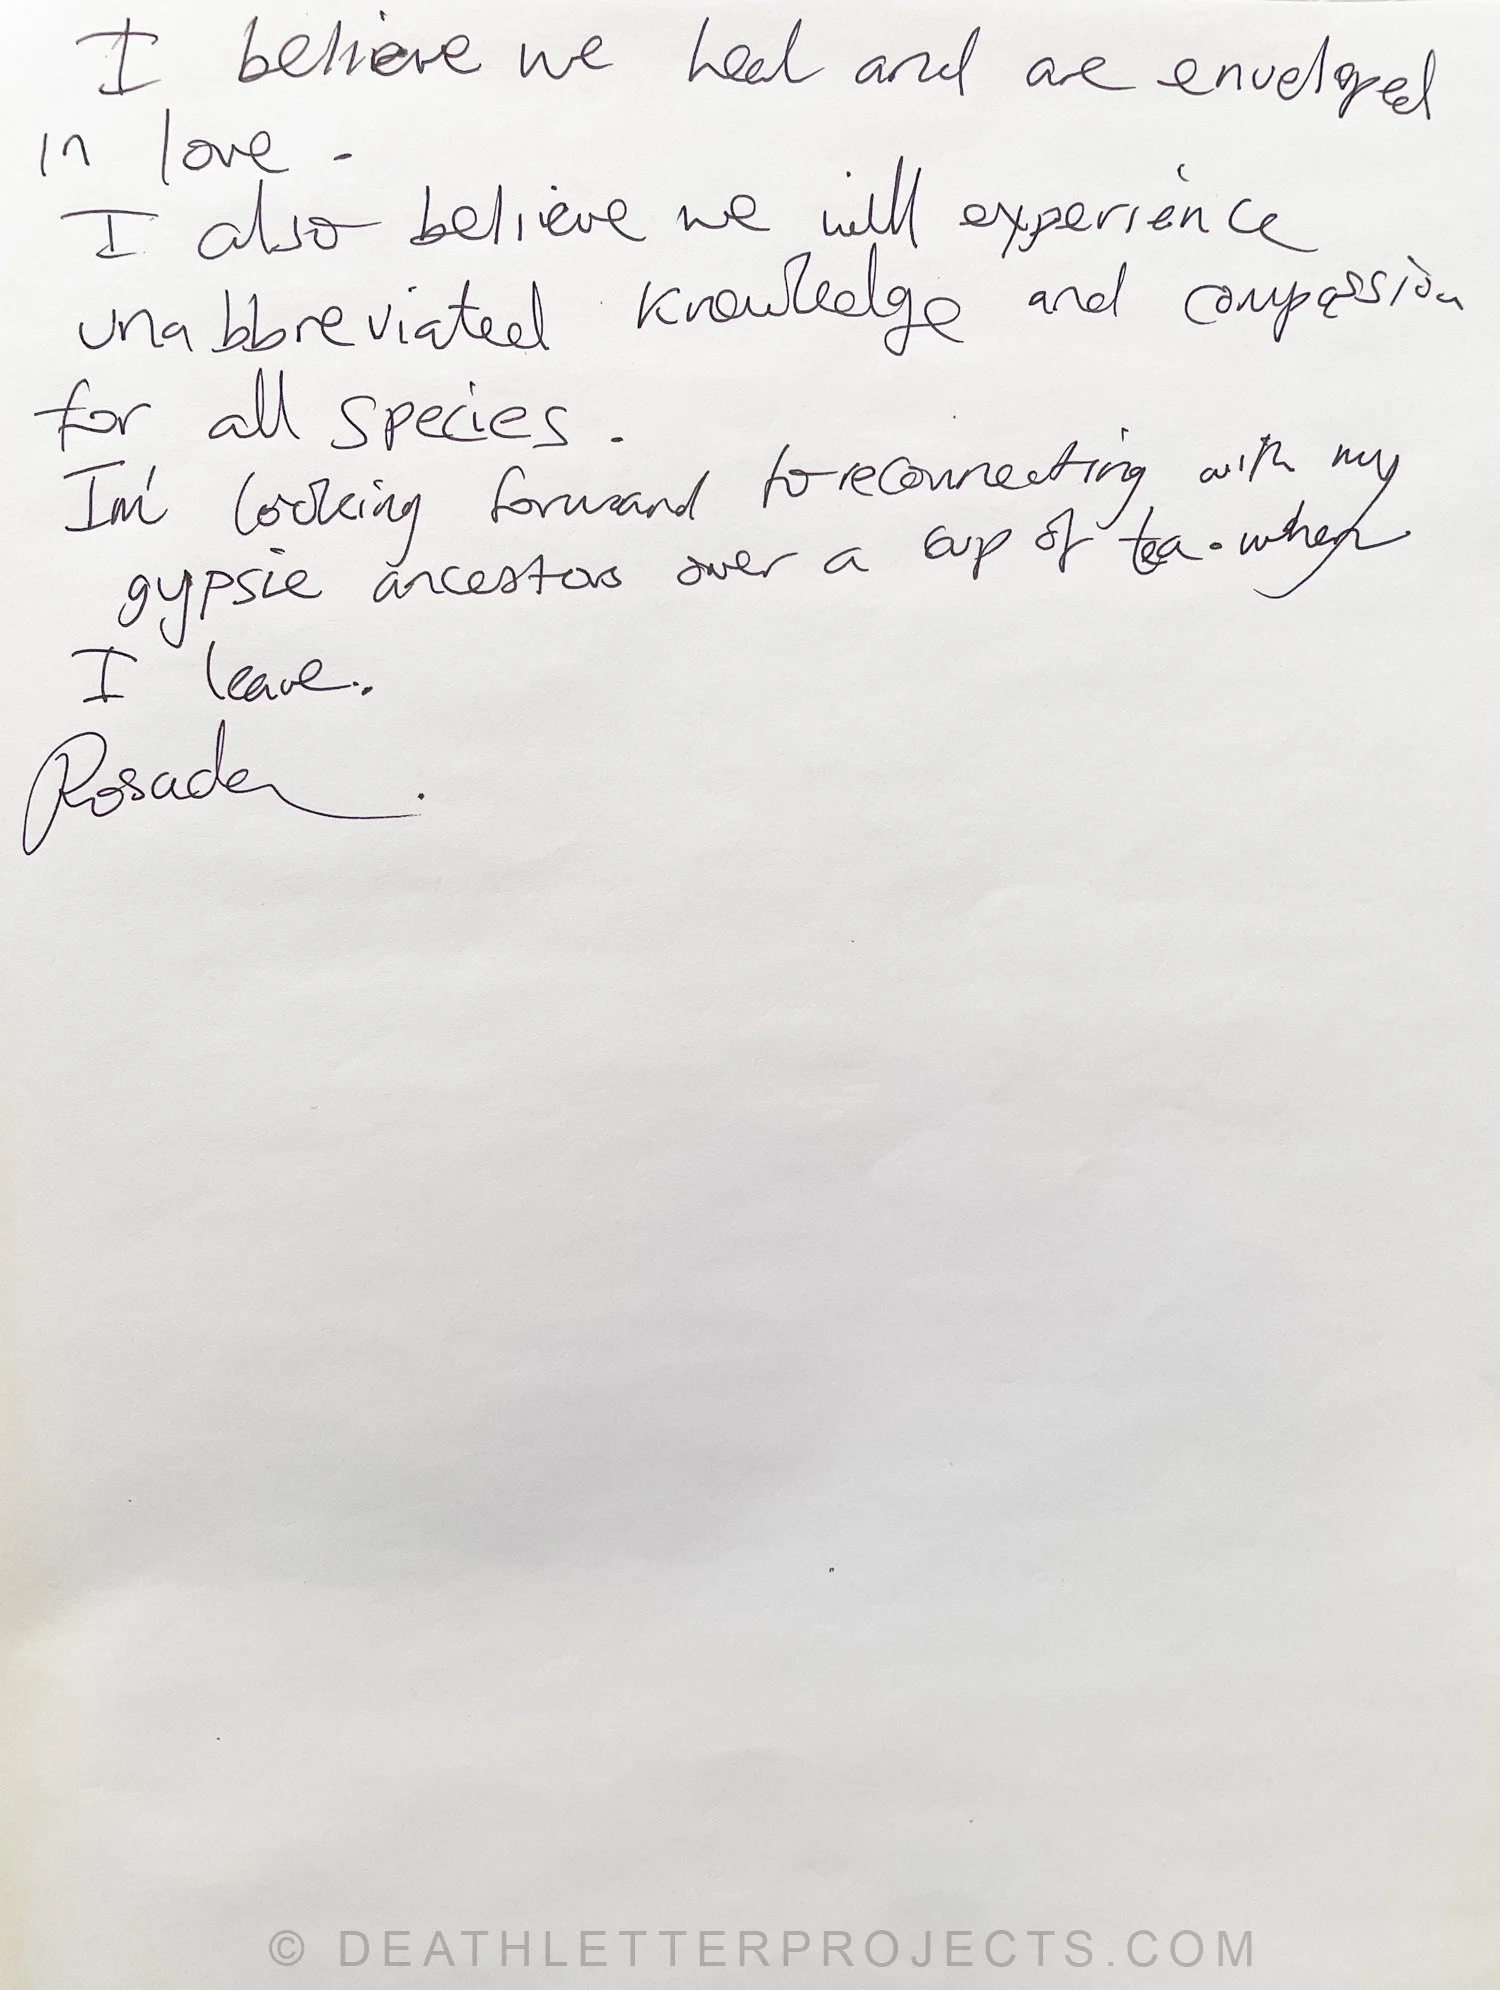 I believe we heal and are enveloped
in love -
I also believe we will experience
unabbreviated knowledge and compassion
for all species.
I'm looking forward to reconnecting with my
gypsie ancestors over a cup of tea. when
I leave..
© DEATHLETTERPROJECTS.COM